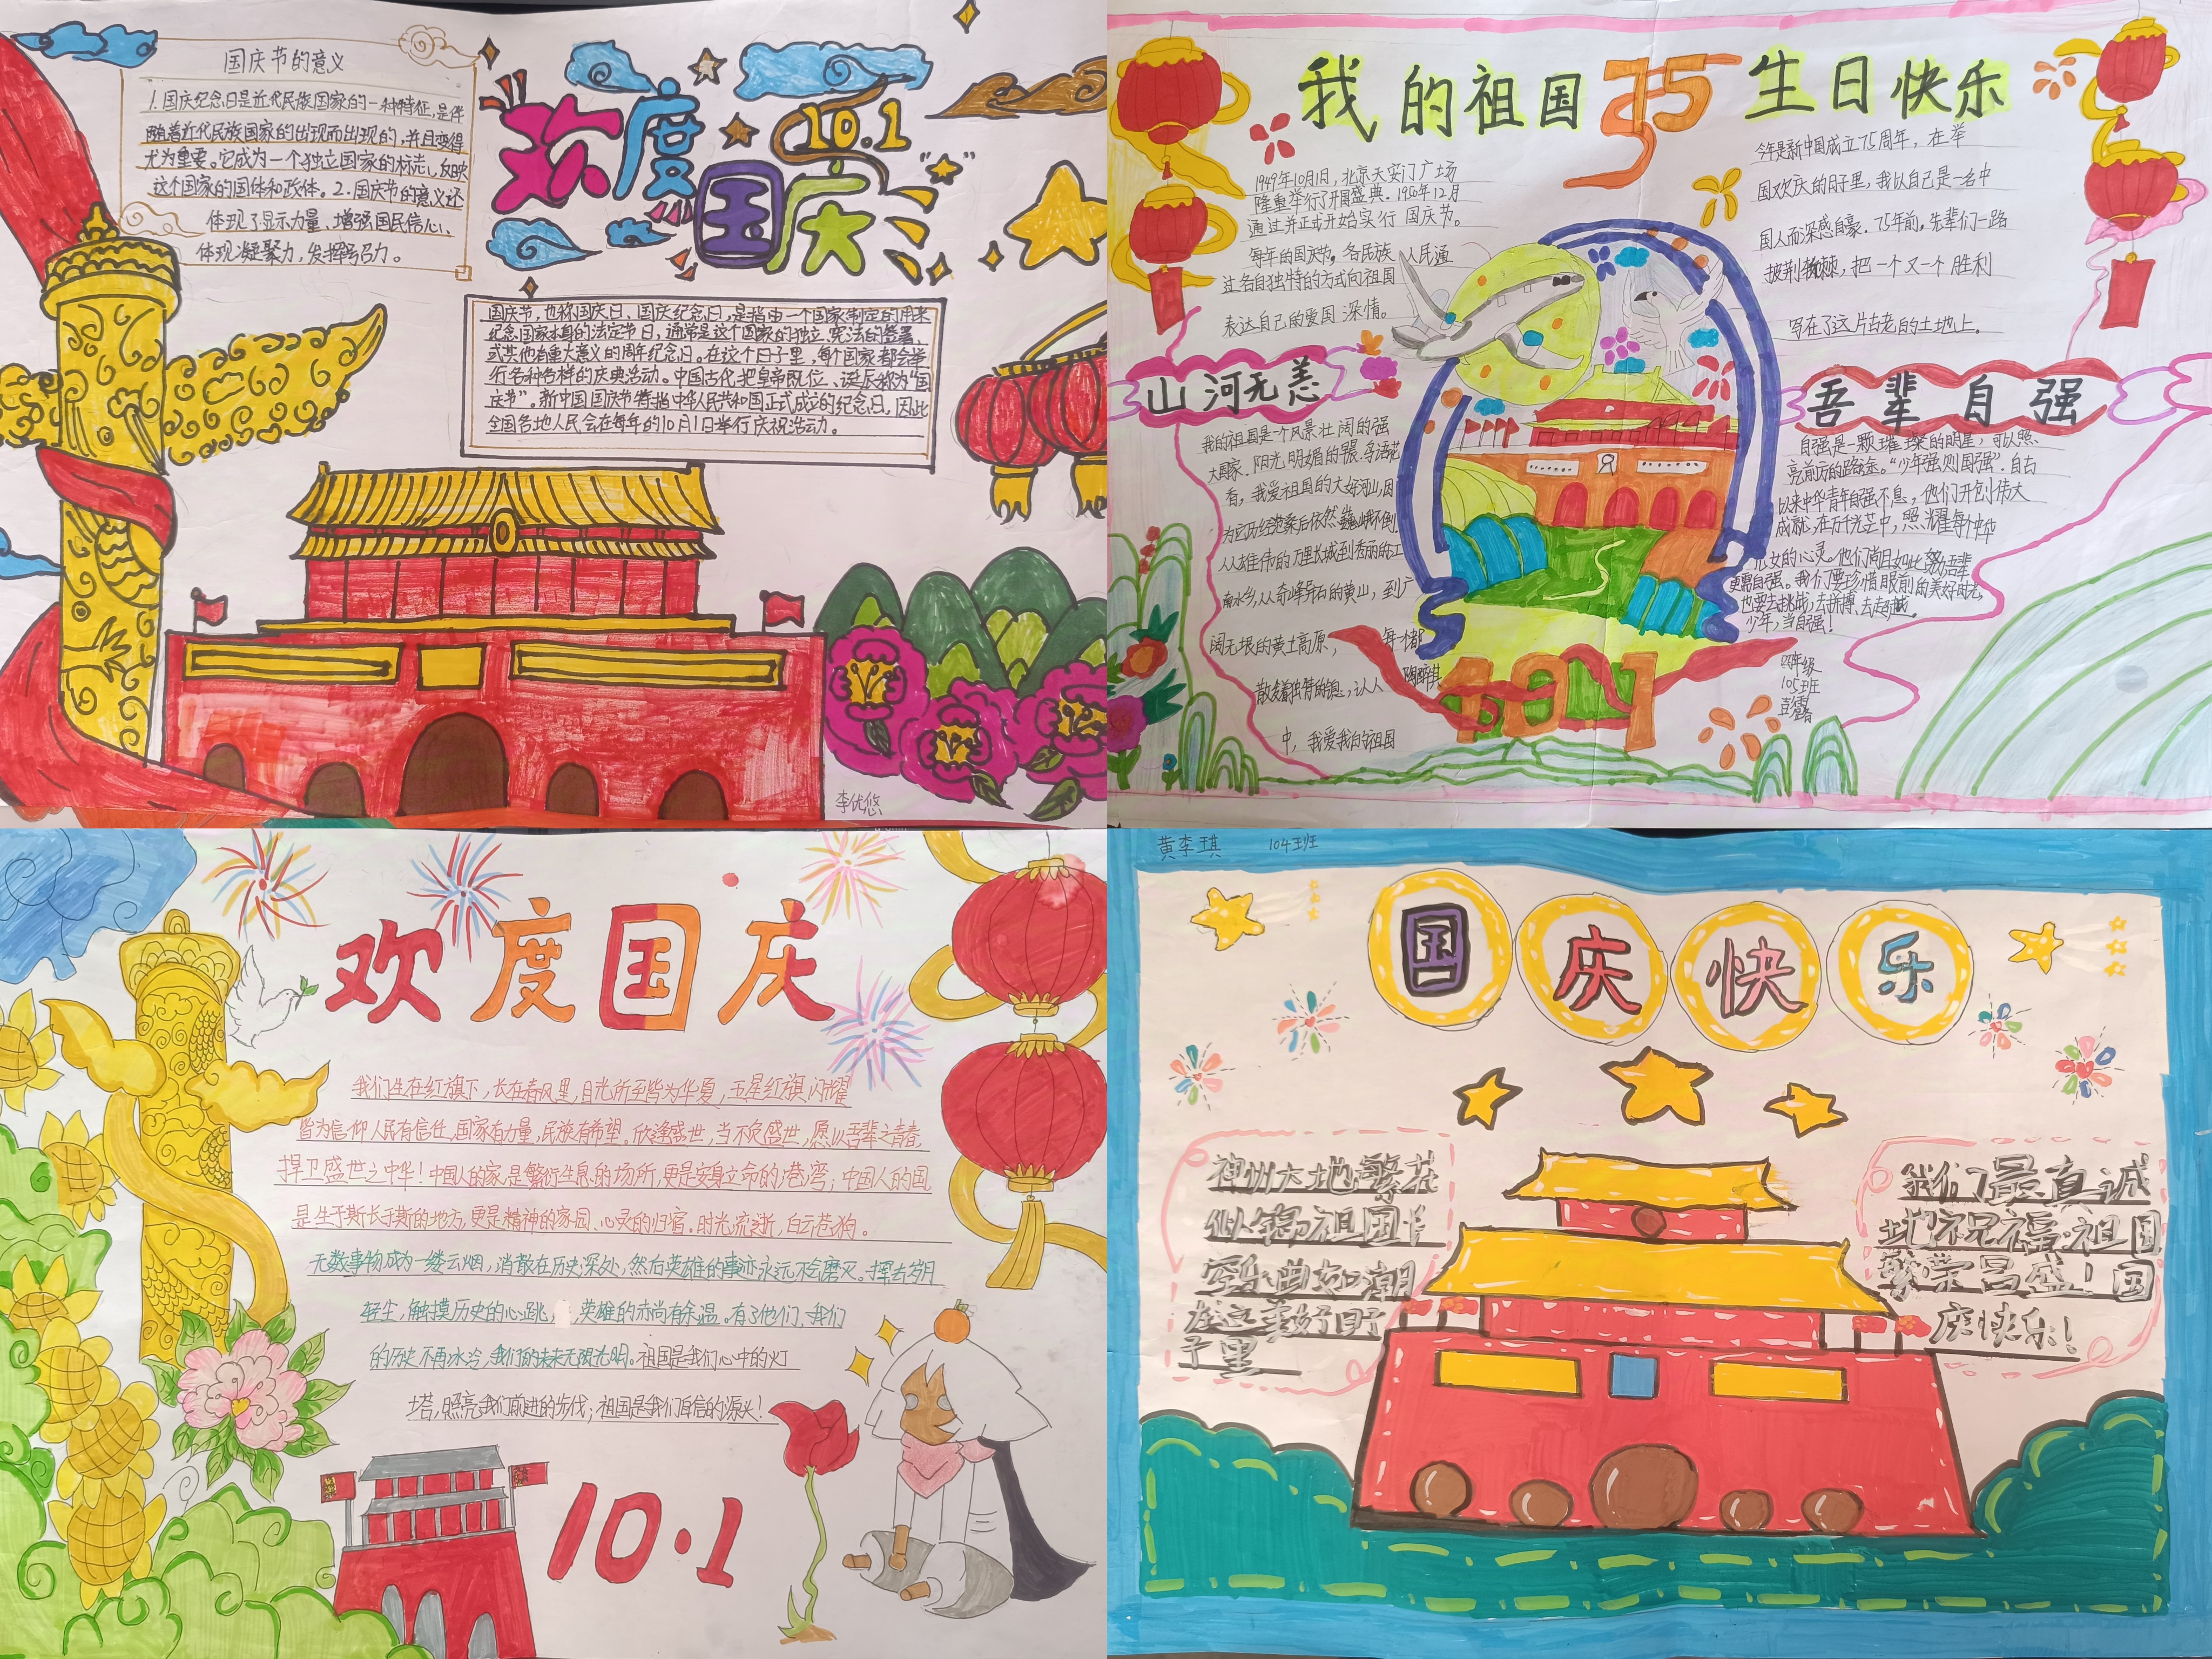 国庆节的意义
1.国庆纪念日是近代民族国家的一种特征,是伴
随着近代民族国家的出现而出现的,并且变得
尤为重要。它成为一个独立国家的标志,反映
这个国家的国体和政体。2.国庆节的意义还
体现了显示力量、增强国民信心,
体现凝聚力,发挥号召力。
欢度
国庆
10.1
国庆节,也称国庆日、国庆纪念日,是指由一个国家制定的用来
纪念国家本身的法定节日,通常是这个国家的独立、宪法的签署、
或其他有重大意义的周年纪念日。在这个日子里,每个国家都会举
行各种各样的庆典活动。中国古代把皇帝即位、诞辰称为“国
庆节”。新中国国庆节特指中华人民共和国正式成立的纪念日,因此
全国各地人民会在每年的10月1日举行庆祝活动。
李优悠
我的祖国75生日快乐
1949年10月1日,北京天安门广场
隆重举行了开国盛典.1950年12月
通过并正式开始实行国庆节。
每年的国庆节,各民族人民通
过各自独特的方式向祖国
表达自己的爱国深情。
今年是新中国成立75周年,在举
国欢庆的日子里,我以自己是一名中
国人而深感自豪.75年前,先辈们一路
披荆棘,把一个又一个胜利
写在了这片古老的土地上。
山河无恙
我的祖国是一个风景壮阔的强
大国家.阳光明媚的
香,我爱祖国的大好河山,因
为它历经沧桑后依然巍峨不倒.
从雄伟的万里长城到秀丽的江
南水乡,从奇峰异石的黄山,到广
阔无垠的黄土高原,每一个都
散发着独特的
中,我爱我的祖国
吾辈自强
自强是一颗璀璨的明星,可以照
亮前方的路途。“少年强则国强”.自古
以来中华青年自强不息,他们开创伟大
成就,在万千光芒中,照耀每个中华
儿女的心灵。他们尚且如此,吾辈
更需自强。我们要珍惜眼前的美好时光,
也要去挑战、去拼搏、去超越。
少年,当自强!
四年级
105班
10.1
欢度国庆
我们生在红旗下,长在春风里,目光所至皆为华夏,五星红旗闪耀
皆为信仰人民有信仕,国家有力量,民族有希望。欣逢盛世,当不负盛世,愿以吾辈之青春,
捍卫盛世之中华!中国人的家,是繁衍生息的场所,更是安身立命的港湾;中国人的国,
是生于斯长于斯的地方,更是精神的家园、心灵的归宿。时光流逝,白云苍狗。
无数事物成为一缕云烟,消散在历史深处,然后英雄的事迹永远不会磨灭。挥去岁月
轻尘,触摸历史的心跳,英雄的亦尚有余温。有了他们,我们
的历史不再冰冷,我们的未来无限光明。祖国是我们心中的灯
塔,照亮我们前进的步伐;祖国是我们自信的源头!
10·1
黄李琪 104班
国庆快乐
神州大地繁花
似锦祖国长
空乐曲如潮
在这美好日
子里
我们最真诚
地祝福:祖国
繁荣昌盛!国
庆快乐!